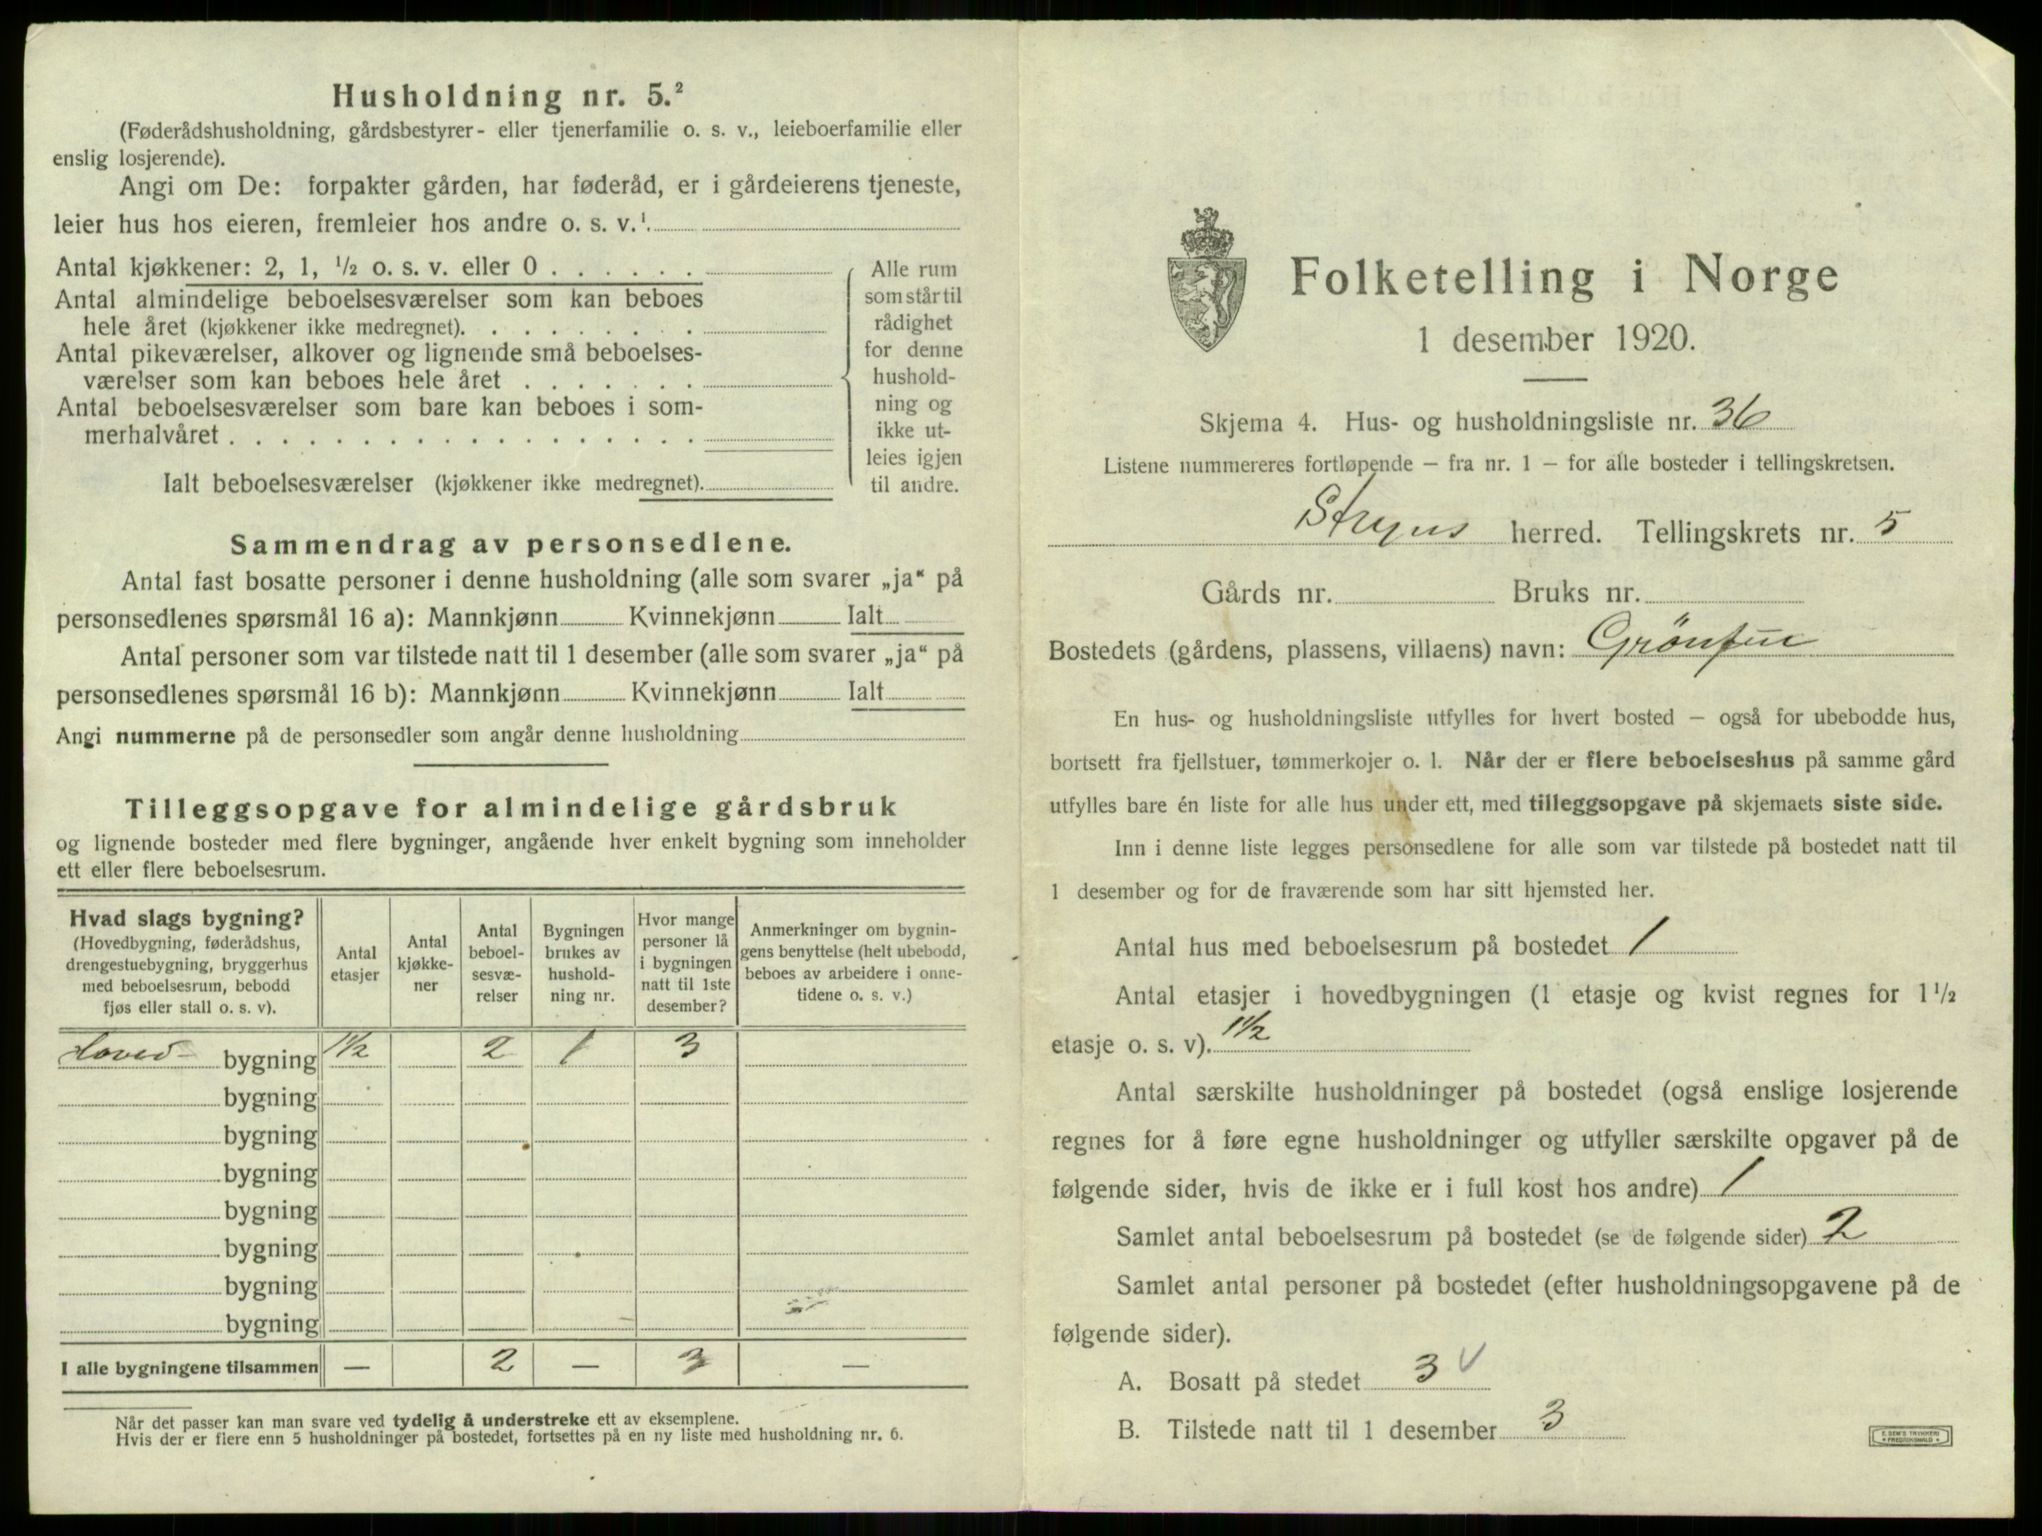 Husholdning nr. 5.²
(Føderådshusholdning, gårdsbestyrer- eller tjenerfamilie o. s. v., leieboerfamilie eller
enslig losjerende).
Angi om De: forpakter gården, har føderåd, er i gårdeierens tjeneste,
leier hus hos eieren, fremleier hos andre o. s. v.¹
Antal kjøkkener: 2, 1, ½ o. s. v. eller 0
Antal almindelige beboelsesværelser som kan beboes
hele året (kjøkkener ikke medregnet).
Antal pikeværelser, alkover og lignende små beboelses-
værelser som kan beboes hele året
Antal beboelsesværelser som bare kan beboes i som-
merhalvåret
Ialt beboelsesværelser (kjøkkener ikke medregnet).
Alle rum
som står til
rådighet
for denne
hushold-
ning og
ikke ut-
leies igjen
til andre.
Sammendrag av personsedlene.
Antal fast bosatte personer i denne husholdning (alle som svarer „ja“ på
personsedlenes spørsmål 16 a): Mannkjønn Kvinnekjønn Ialt
Antal personer som var tilstede natt til 1 desember (alle som svarer „ja“ på
personsedlenes spørsmål 16 b): Mannkjønn Kvinnekjønn Ialt
Angi nummerne på de personsedler som angår denne husholdning
Tilleggsopgave for almindelige gårdsbruk
og lignende bosteder med flere bygninger, angående hver enkelt bygning som inneholder
ett eller flere beboelsesrum.
Hvad slags bygning?
(Hovedbygning, føderådshus,
drengestuebygning, bryggerhus
med beboelsesrum, bebodd
fjøs eller stall o. s. v).
Antal
etasjer
Antal
kjøkke-
ner
Antal
beboel-
sesvæ-
relser
Bygningen
brukes av
hushold-
ning nr.
Hvor mange
personer lå
i bygningen
natt til 1ste
desember?
Anmerkninger om bygnin-
gens benyttelse (helt ubebodd,
beboes av arbeidere i onne-
tidene o. s. v.)
Hoved- bygning 1½ 2 1 3
bygning
bygning
bygning
bygning
bygning
bygning
bygning
I alle bygningene tilsammen — 2 — 3 —
Når det passer kan man svare ved tydelig å understreke ett av eksemplene.
Hvis der er flere enn 5 husholdninger på bostedet, fortsettes på en ny liste med husholdning nr. 6.
Folketelling i Norge
1 desember 1920.
Skjema 4. Hus- og husholdningsliste nr. 36
Listene nummereres fortløpende — fra nr. 1 — for alle bosteder i tellingskretsen.
Stryns herred. Tellingskrets nr. 5
Gårds nr. Bruks nr.
Bostedets (gårdens, plassens, villaens) navn:
En hus- og husholdningsliste utfylles for hvert bosted — også for ubebodde hus,
bortsett fra fjellstuer, tømmerkojer o. l. Når der er flere beboelseshus på samme gård
utfylles bare én liste for alle hus under ett, med tilleggsopgave på skjemaets siste side.
Inn i denne liste legges personsedlene for alle som var tilstede på bostedet natt til
1 desember og for de fraværende som har sitt hjemsted her.
Antal hus med beboelsesrum på bostedet 1
Antal etasjer i hovedbygningen (1 etasje og kvist regnes for 1½
etasje o. s. v). 1½
Antal særskilte husholdninger på bostedet (også enslige losjerende
regnes for å føre egne husholdninger og utfyller særskilte opgaver på de
følgende sider, hvis de ikke er i full kost hos andre) 1
Samlet antal beboelsesrum på bostedet (se de følgende sider) 2
Samlet antal personer på bostedet (efter husholdningsopgavene på de
følgende sider).
A. Bosatt på stedet 3 V
B. Tilstede natt til 1 desember 3
E. SEM'S TRYKKERI
FREDRIKSHALD